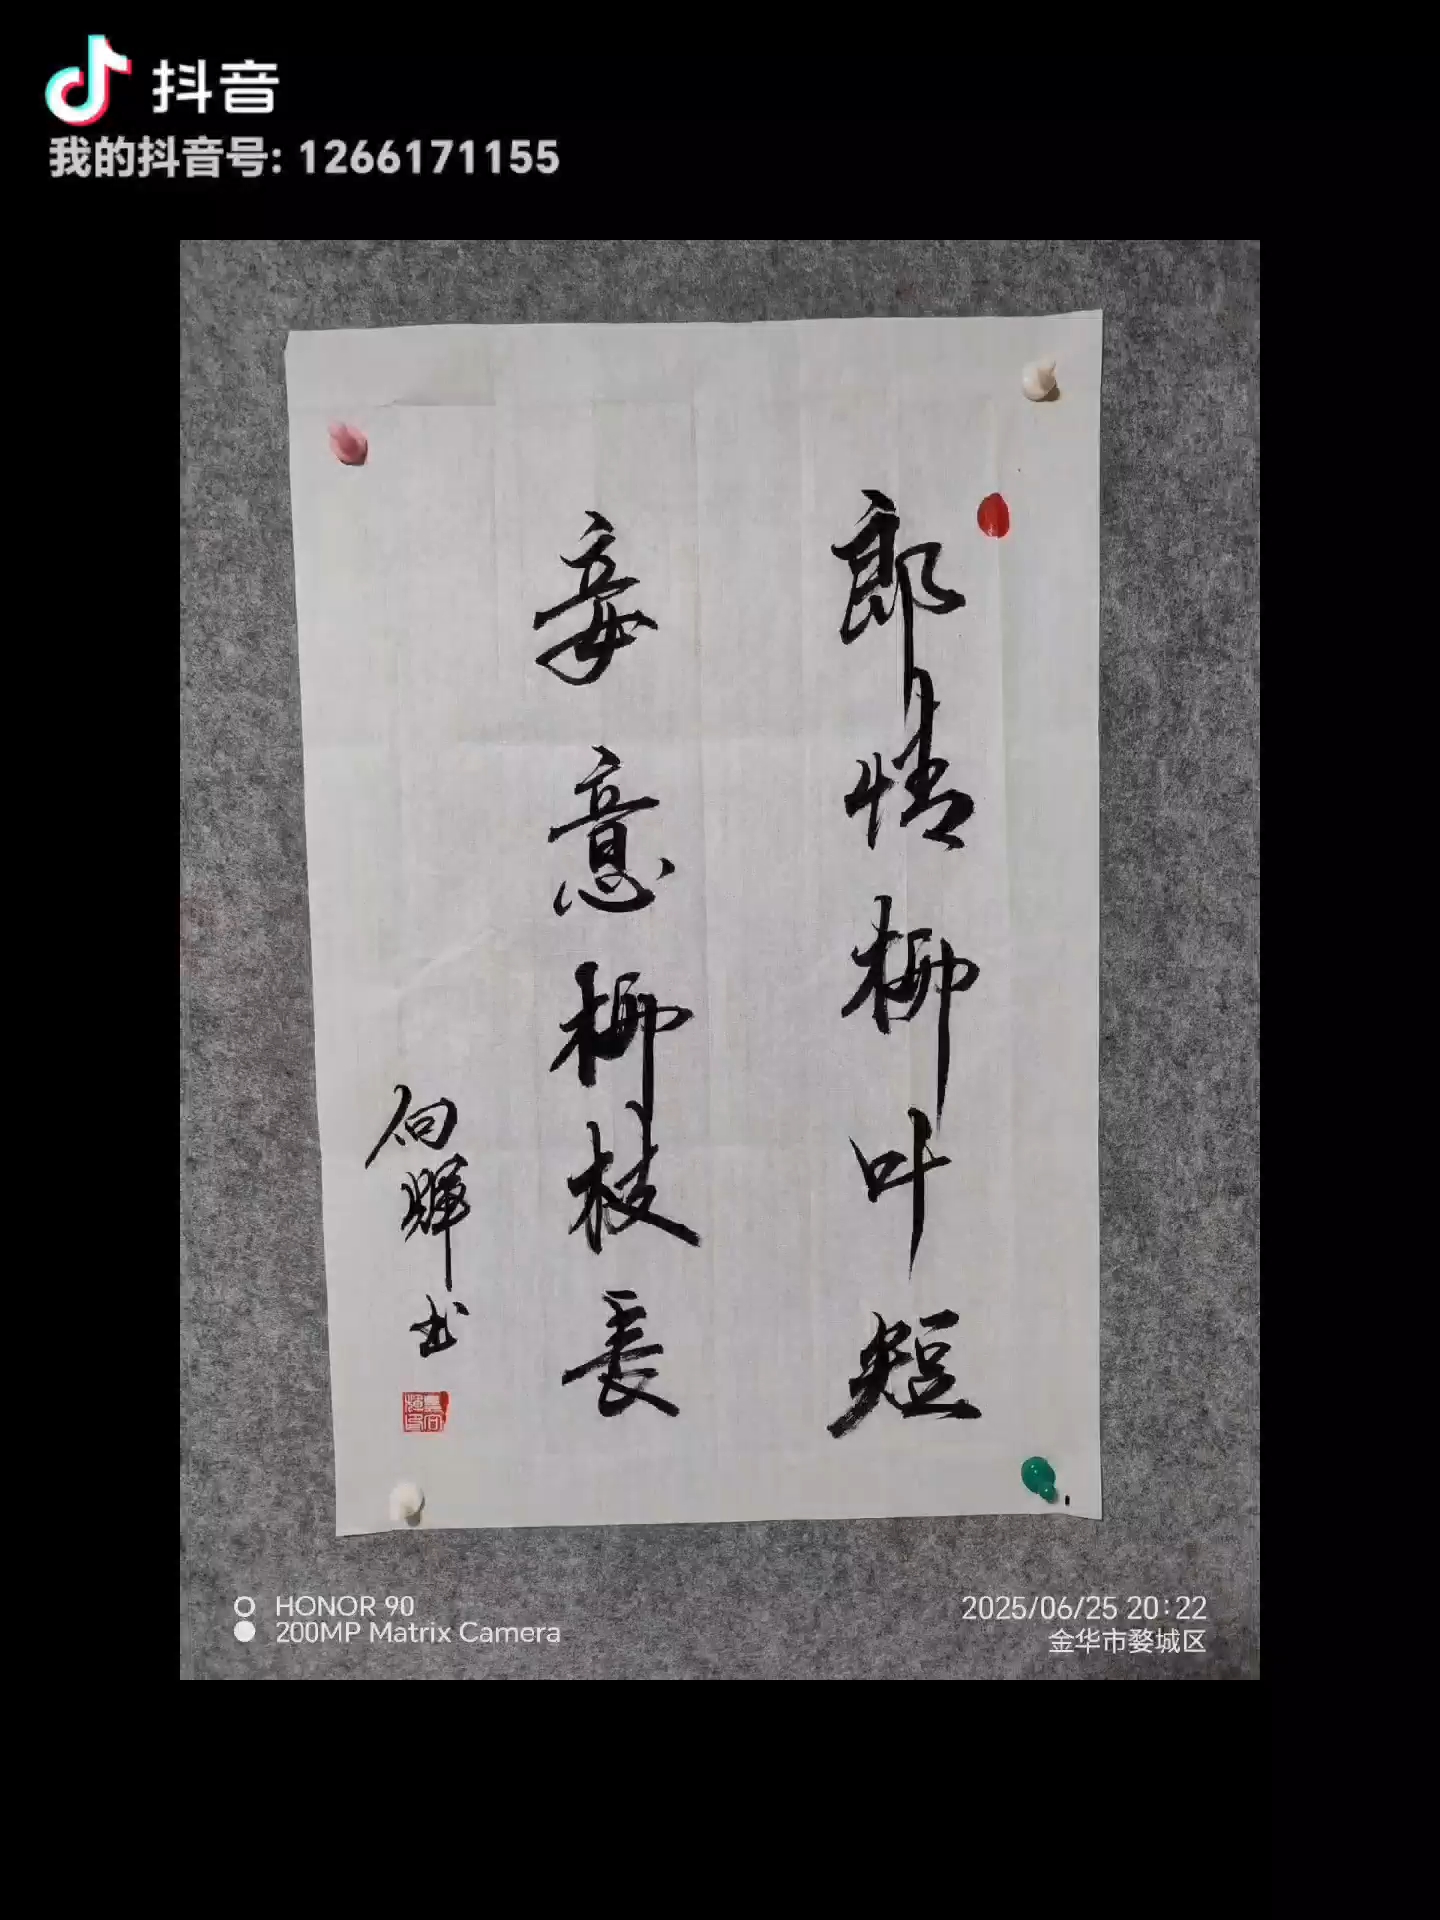 抖音
我的抖音号: 1266171155
郎情柳叶短
妾意柳枝长
向辉书
HONOR 90
200MP Matrix Camera
2025/06/25 20:22
金华市婺城区